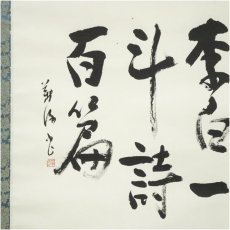 李白一
斗詩
百篇